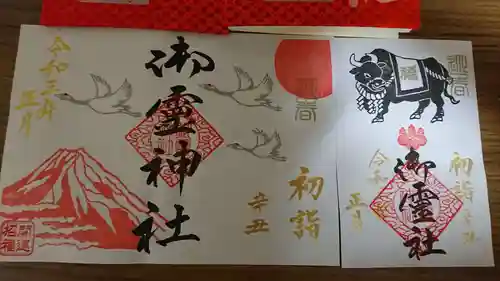 令和三年
正月
御霊神社
迎春
辛丑
初詣
開運
招福
迎春
福
令和
正月
御霊社
初詣